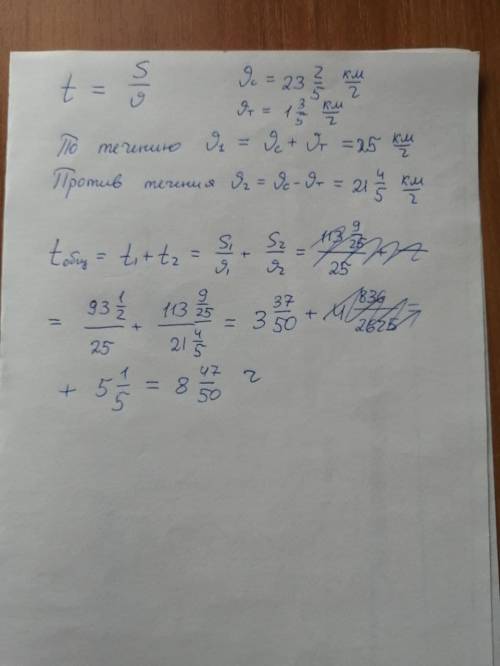 t = S/ϑ ϑc = 23 2/5 км/ч
ϑт = 1 3/5 км/ч
По течению ϑ1 = ϑc + ϑт = 25 км/ч
Против течения ϑ2 = ϑc - ϑт = 21 4/5 км/ч
tобщ = t1 + t2 = S1/ϑ1 + S2/ϑ2 =
= 93 1/2 / 25 + 113 9/25 / 21 4/5 = 3 37/50 +
+ 5 1/5 = 8 47/50 ч